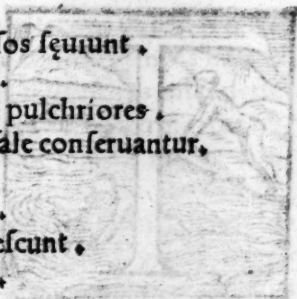 ſos ſęuiunt .
.
pulchriores .
ſale conſeruantur.
.
eſcunt .
.